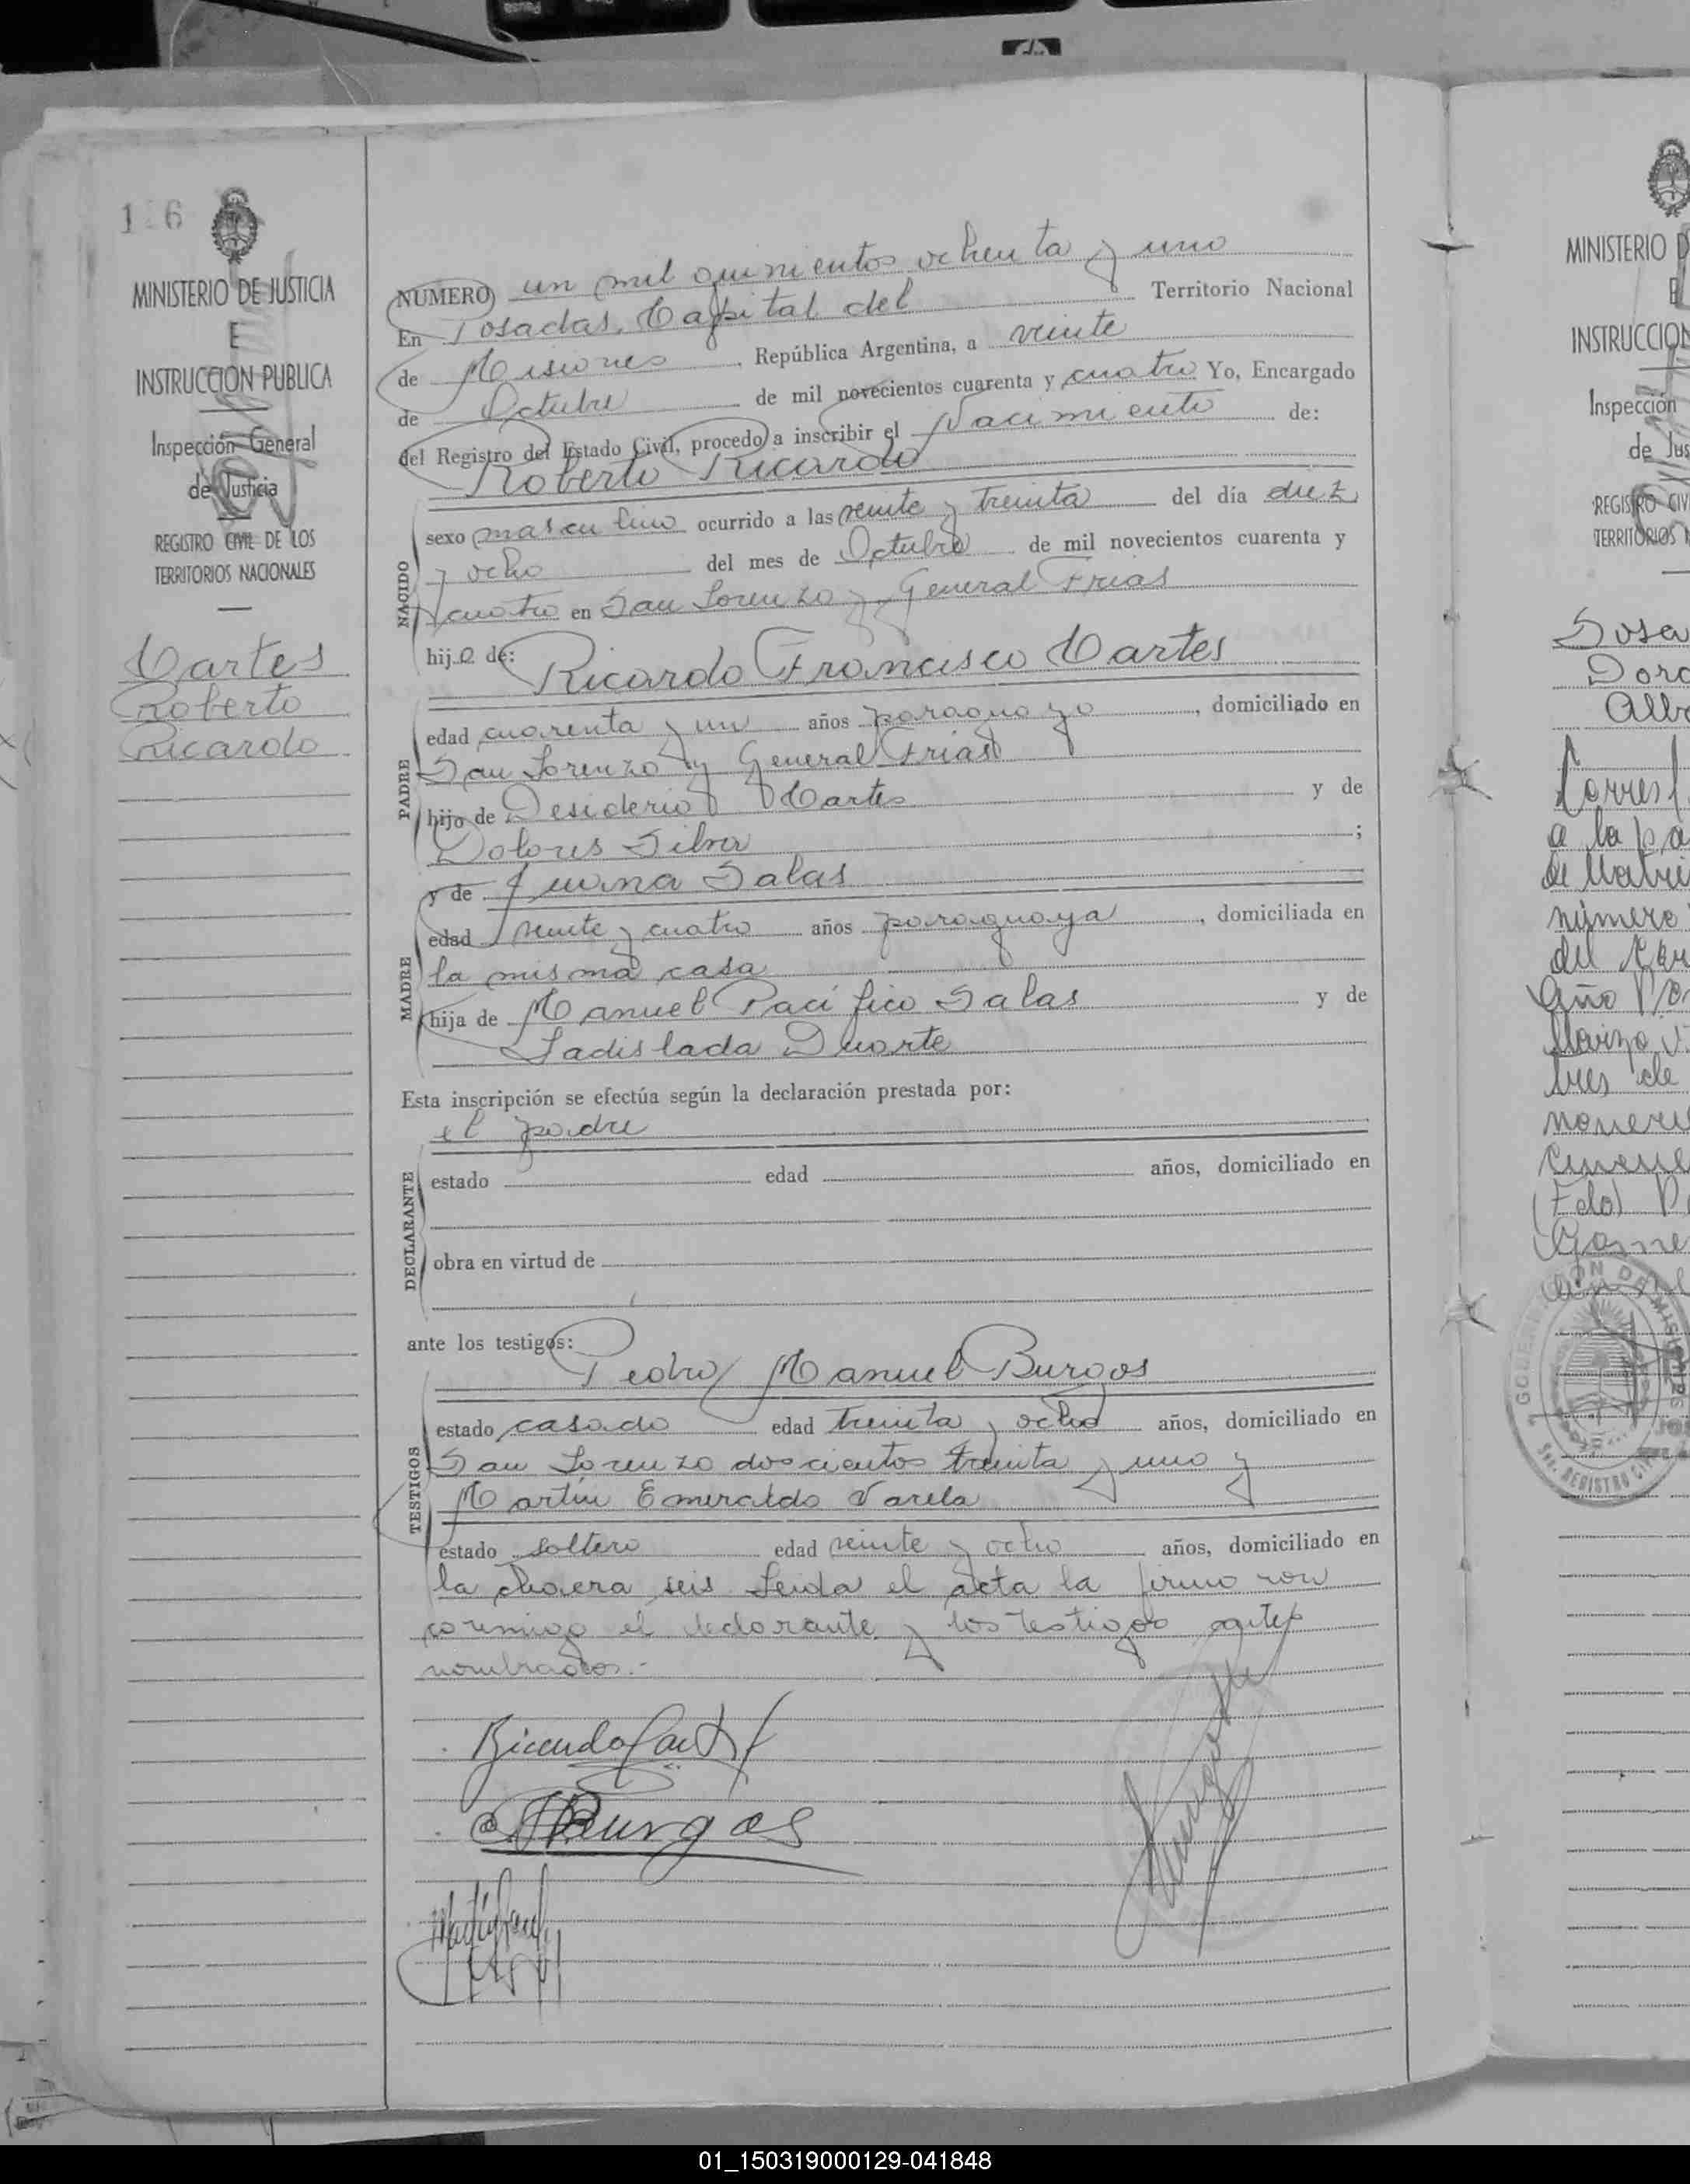 MINISTERIO DE JUSTICIA
E
INSTRUCCION PUBLICA
Inspección General
de Justicia
REGISTRO CIVIL DE LOS
TERRITORIOS NACIONALES
Cartes
Roberto
Ricardo
NÚMERO un mil quinientos ochenta y uno
En Posadas, Capital del Territorio Nacional
de Misiones República Argentina, a veinte
de Octubre de mil novecientos cuarenta y cuatro Yo, Encargado
del Registro del Estado Civil, procedo a inscribir el Nacimiento de:
Roberto Ricardo
NACIDO
sexo masculino ocurrido a las veinte y treinta del día diez
y ocho del mes de Octubre de mil novecientos cuarenta y
cuatro en San Lorenzo y General Frias
hijo de: Ricardo Francisco Cartes
PADRE
edad cuarenta y un años paraguayo, domiciliado en
San Lorenzo y General Frias
hijo de Desiderio Cartes y de
Dolores Silva ;
y de Juana Salas
MADRE
edad veinte y cuatro años paraguaya, domiciliada en
la misma casa
hija de Manuel Pacifico Salas y de
Ladislada Duarte
Esta inscripción se efectúa según la declaración prestada por:
el padre
DECLARANTE
estado edad años, domiciliado en
obra en virtud de
ante los testigos:
Pedro Manuel Burgos
TESTIGOS
estado casado edad treinta y ocho años, domiciliado en
San Lorenzo doscientos treinta y uno y
Martín Emeraldo Varela
estado soltero edad veinte y ocho años, domiciliado en
la chacra seis Leida el acta la firmo con
conmigo el declarante y los testigos antes
nombrados.-
Burgos
MINISTERIO D
E
INSTRUCCION
Inspección
de Jus
REGISTRO CIV
TERRITORIOS N
Sosa
Alb
a la pa
número
del
año
tres de
01_150319000129-041848